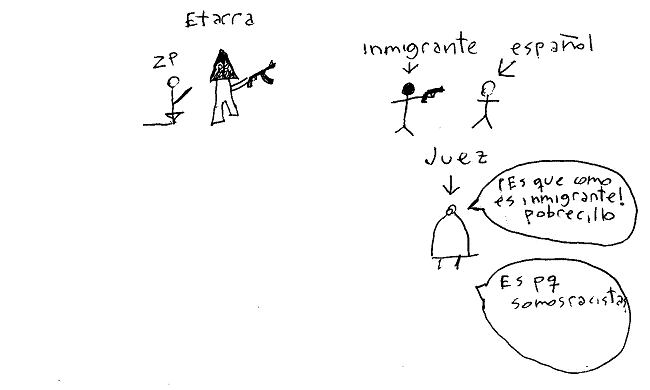 Etarra
ZP
inmigrante
español
Juez
¡Es que como
es inmigrante!
pobrecillo
Es pq
somos racistas